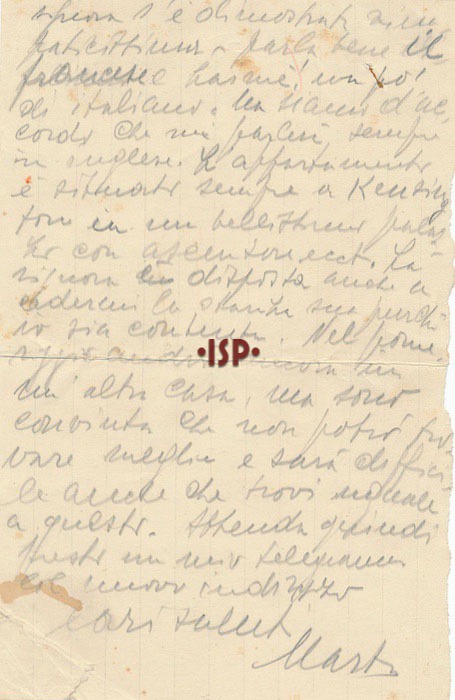 signora s'è dimostrata sim
paticissima - parla bene il
francese e haimé! un po'
di italiano. Ma siamo d'ac
cordo che mi parlerà sempre
in inglese. L'appartamento
è situato sempre a Kensing
ton in un bellissimo palaz
zo con ascensore ect. La
signora è disposta anche a
cedermi la stanza sua purché
io sia contenta. Nel pome
riggio andrò ancora in
•ISP•
un'altra casa, ma sono
convinta che non potrò tro
vare meglio e sarà diffici
le anche che trovi uguale
a questo. Attenda quindi
presto un mio telegramma
col nuovo indirizzo
Cari saluti
Marta